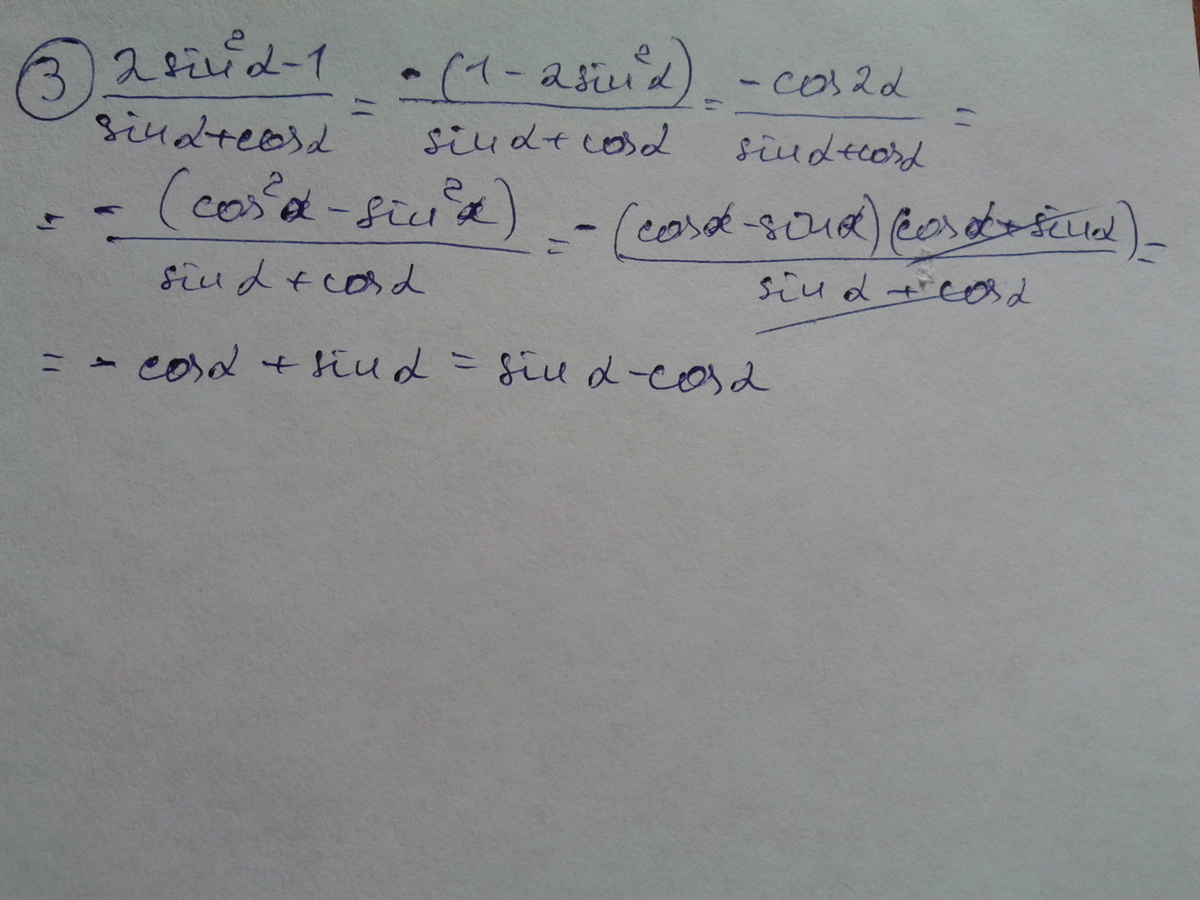 ③ (2sin²α-1)/(sinα+cosα) = -(1-2sin²α)/(sinα+cosα) = -cos2α/(sinα+cosα) =
= -(cos²α-sin²α)/(sinα+cosα) = -(cosα-sinα)(cosα+sinα)/(sinα+cosα) =
= -cosα+sinα = sinα-cosα